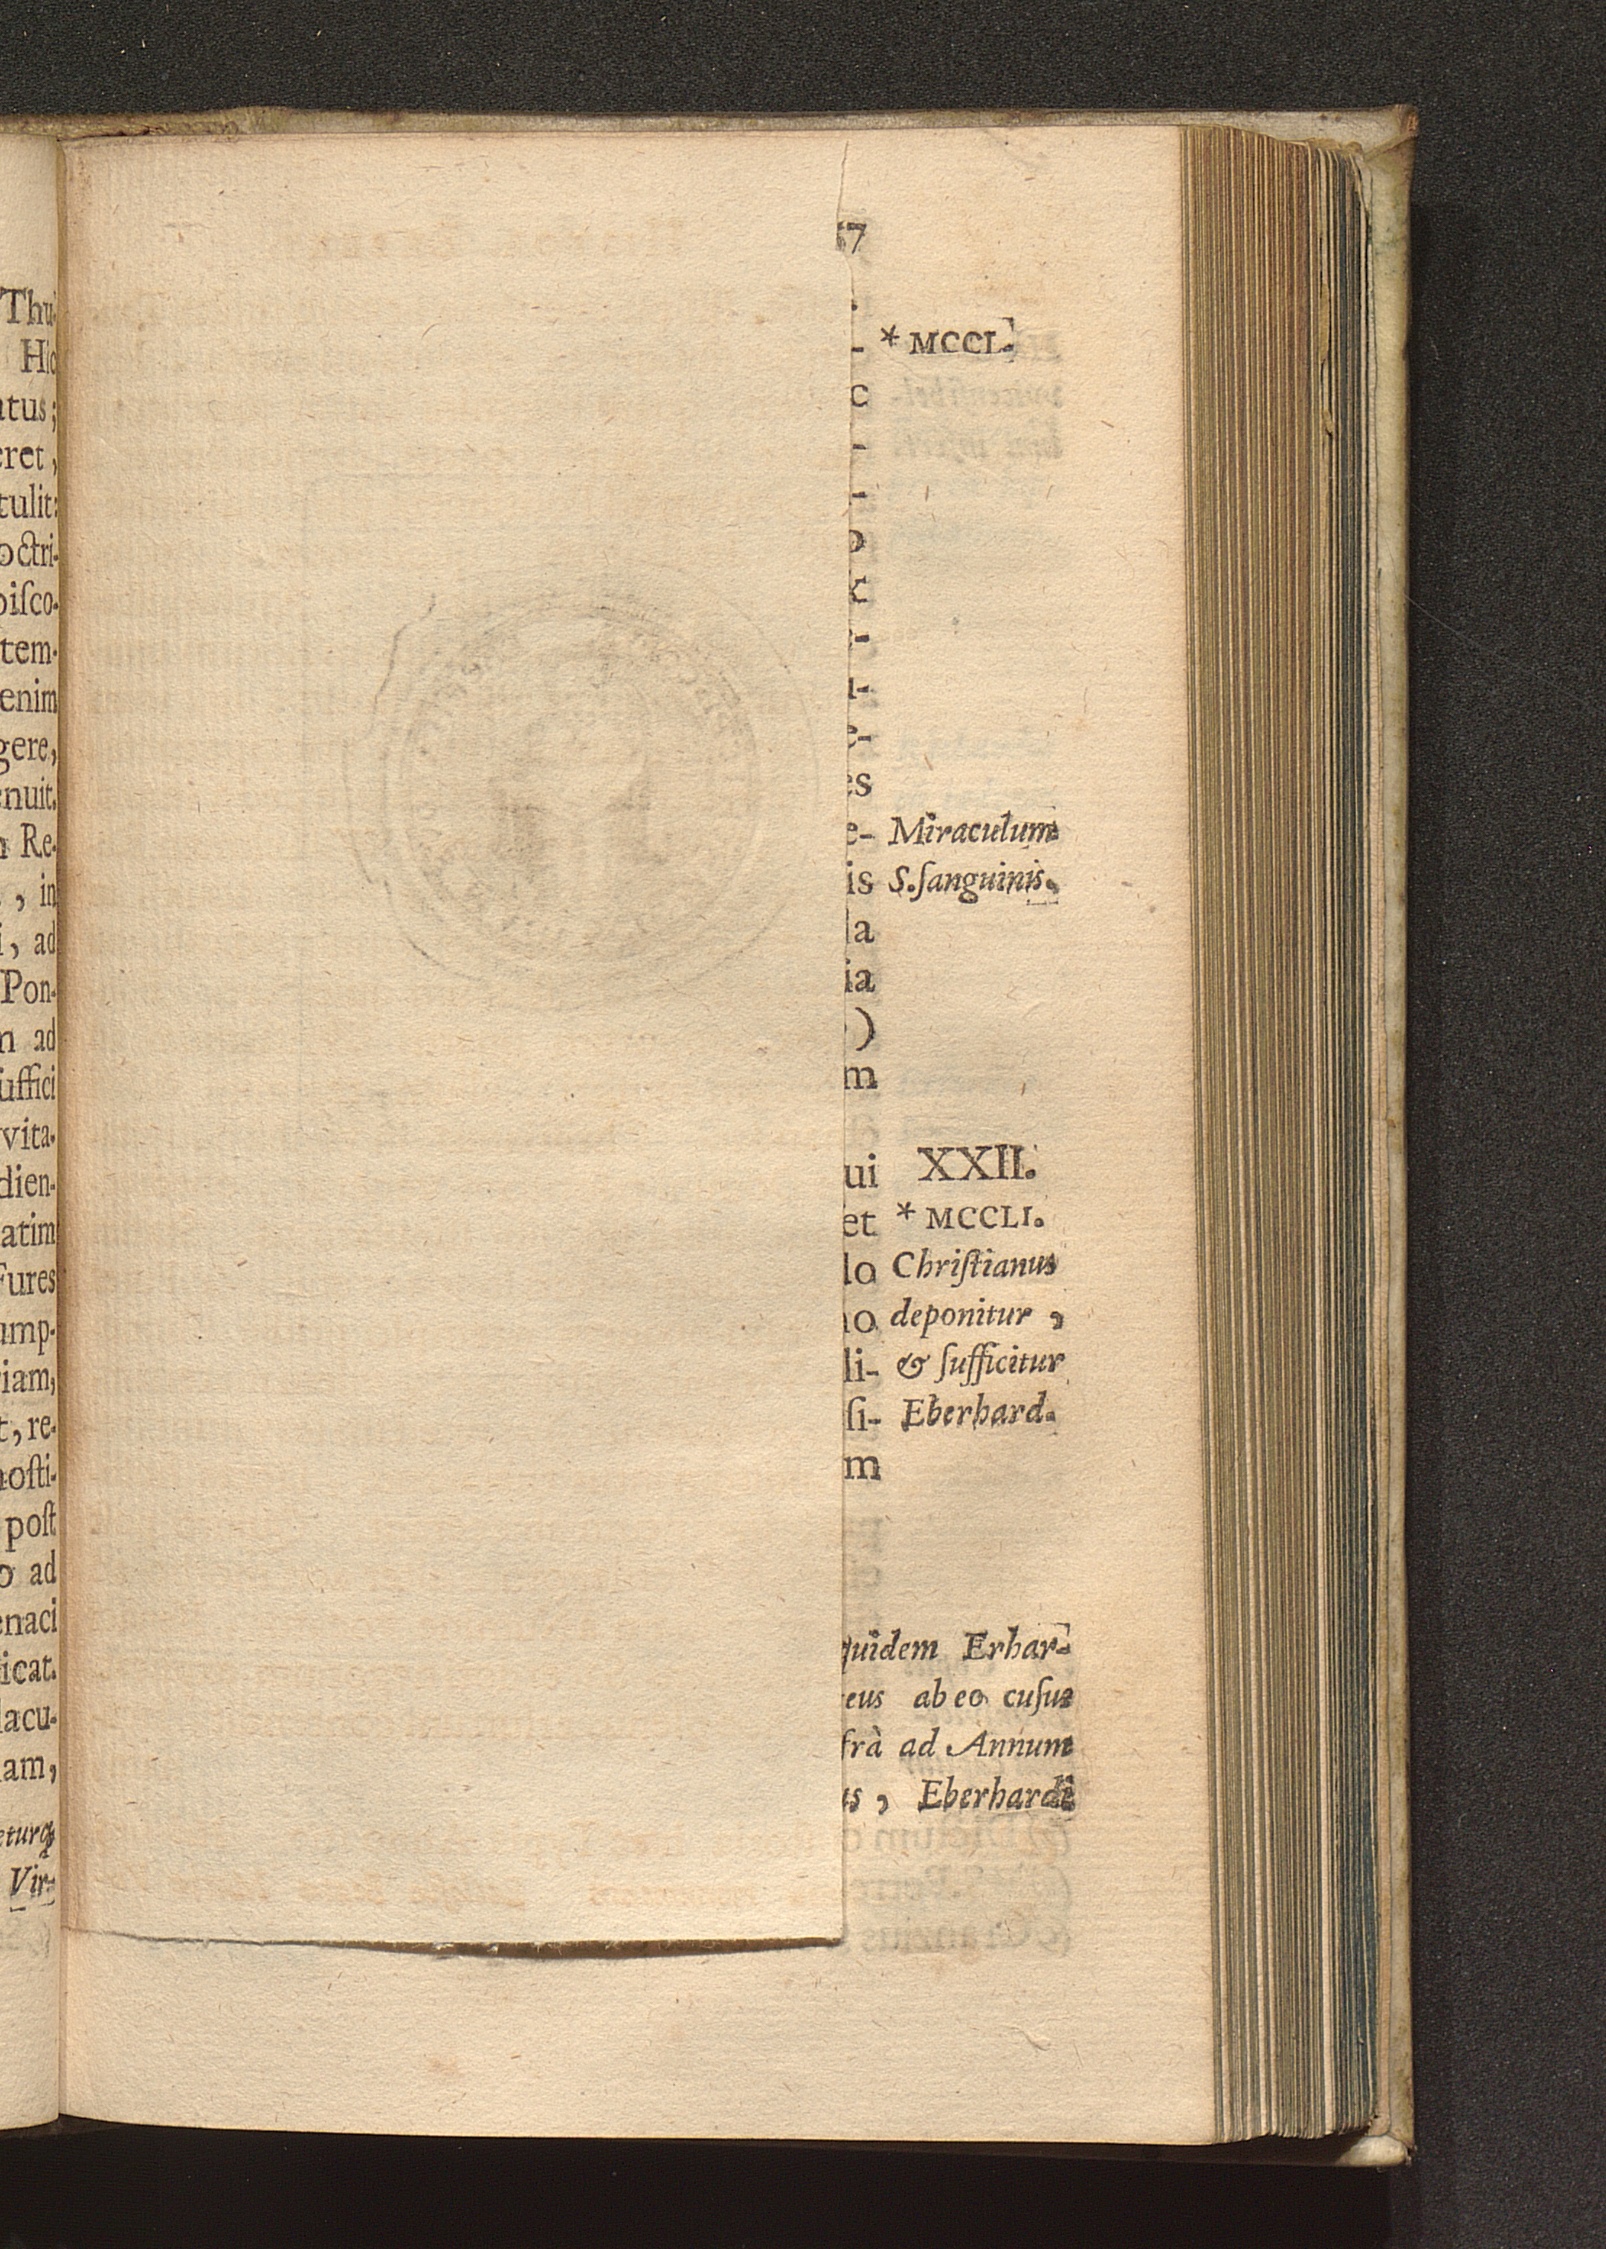 Thu-
Hic
atus;
eret,
tulit:
octri-
piſco-
tem-
enim
gere,
enuit.
n Re-
, in
i, ad
Pon-
m ad
ſuffici
vita-
dien-
atim
Fures
ump-
iam,
t, re-
noſti-
poſt
o ad
enaci
icat.
lacu-
am,
Vir-
7
.
- * MCCL.
c
-
-
o
-
-
e-
es
e- Miraculum
is S. ſanguinis.
la
ia
)
m
ui XXII.
et * MCCLI.
lo Chriſtianus
no deponitur,
li- & ſufficitur
ſi- Eberhard.
m
quidem Erhar-
eus ab eo cuſus
frà ad Annum
us, Eberhardi